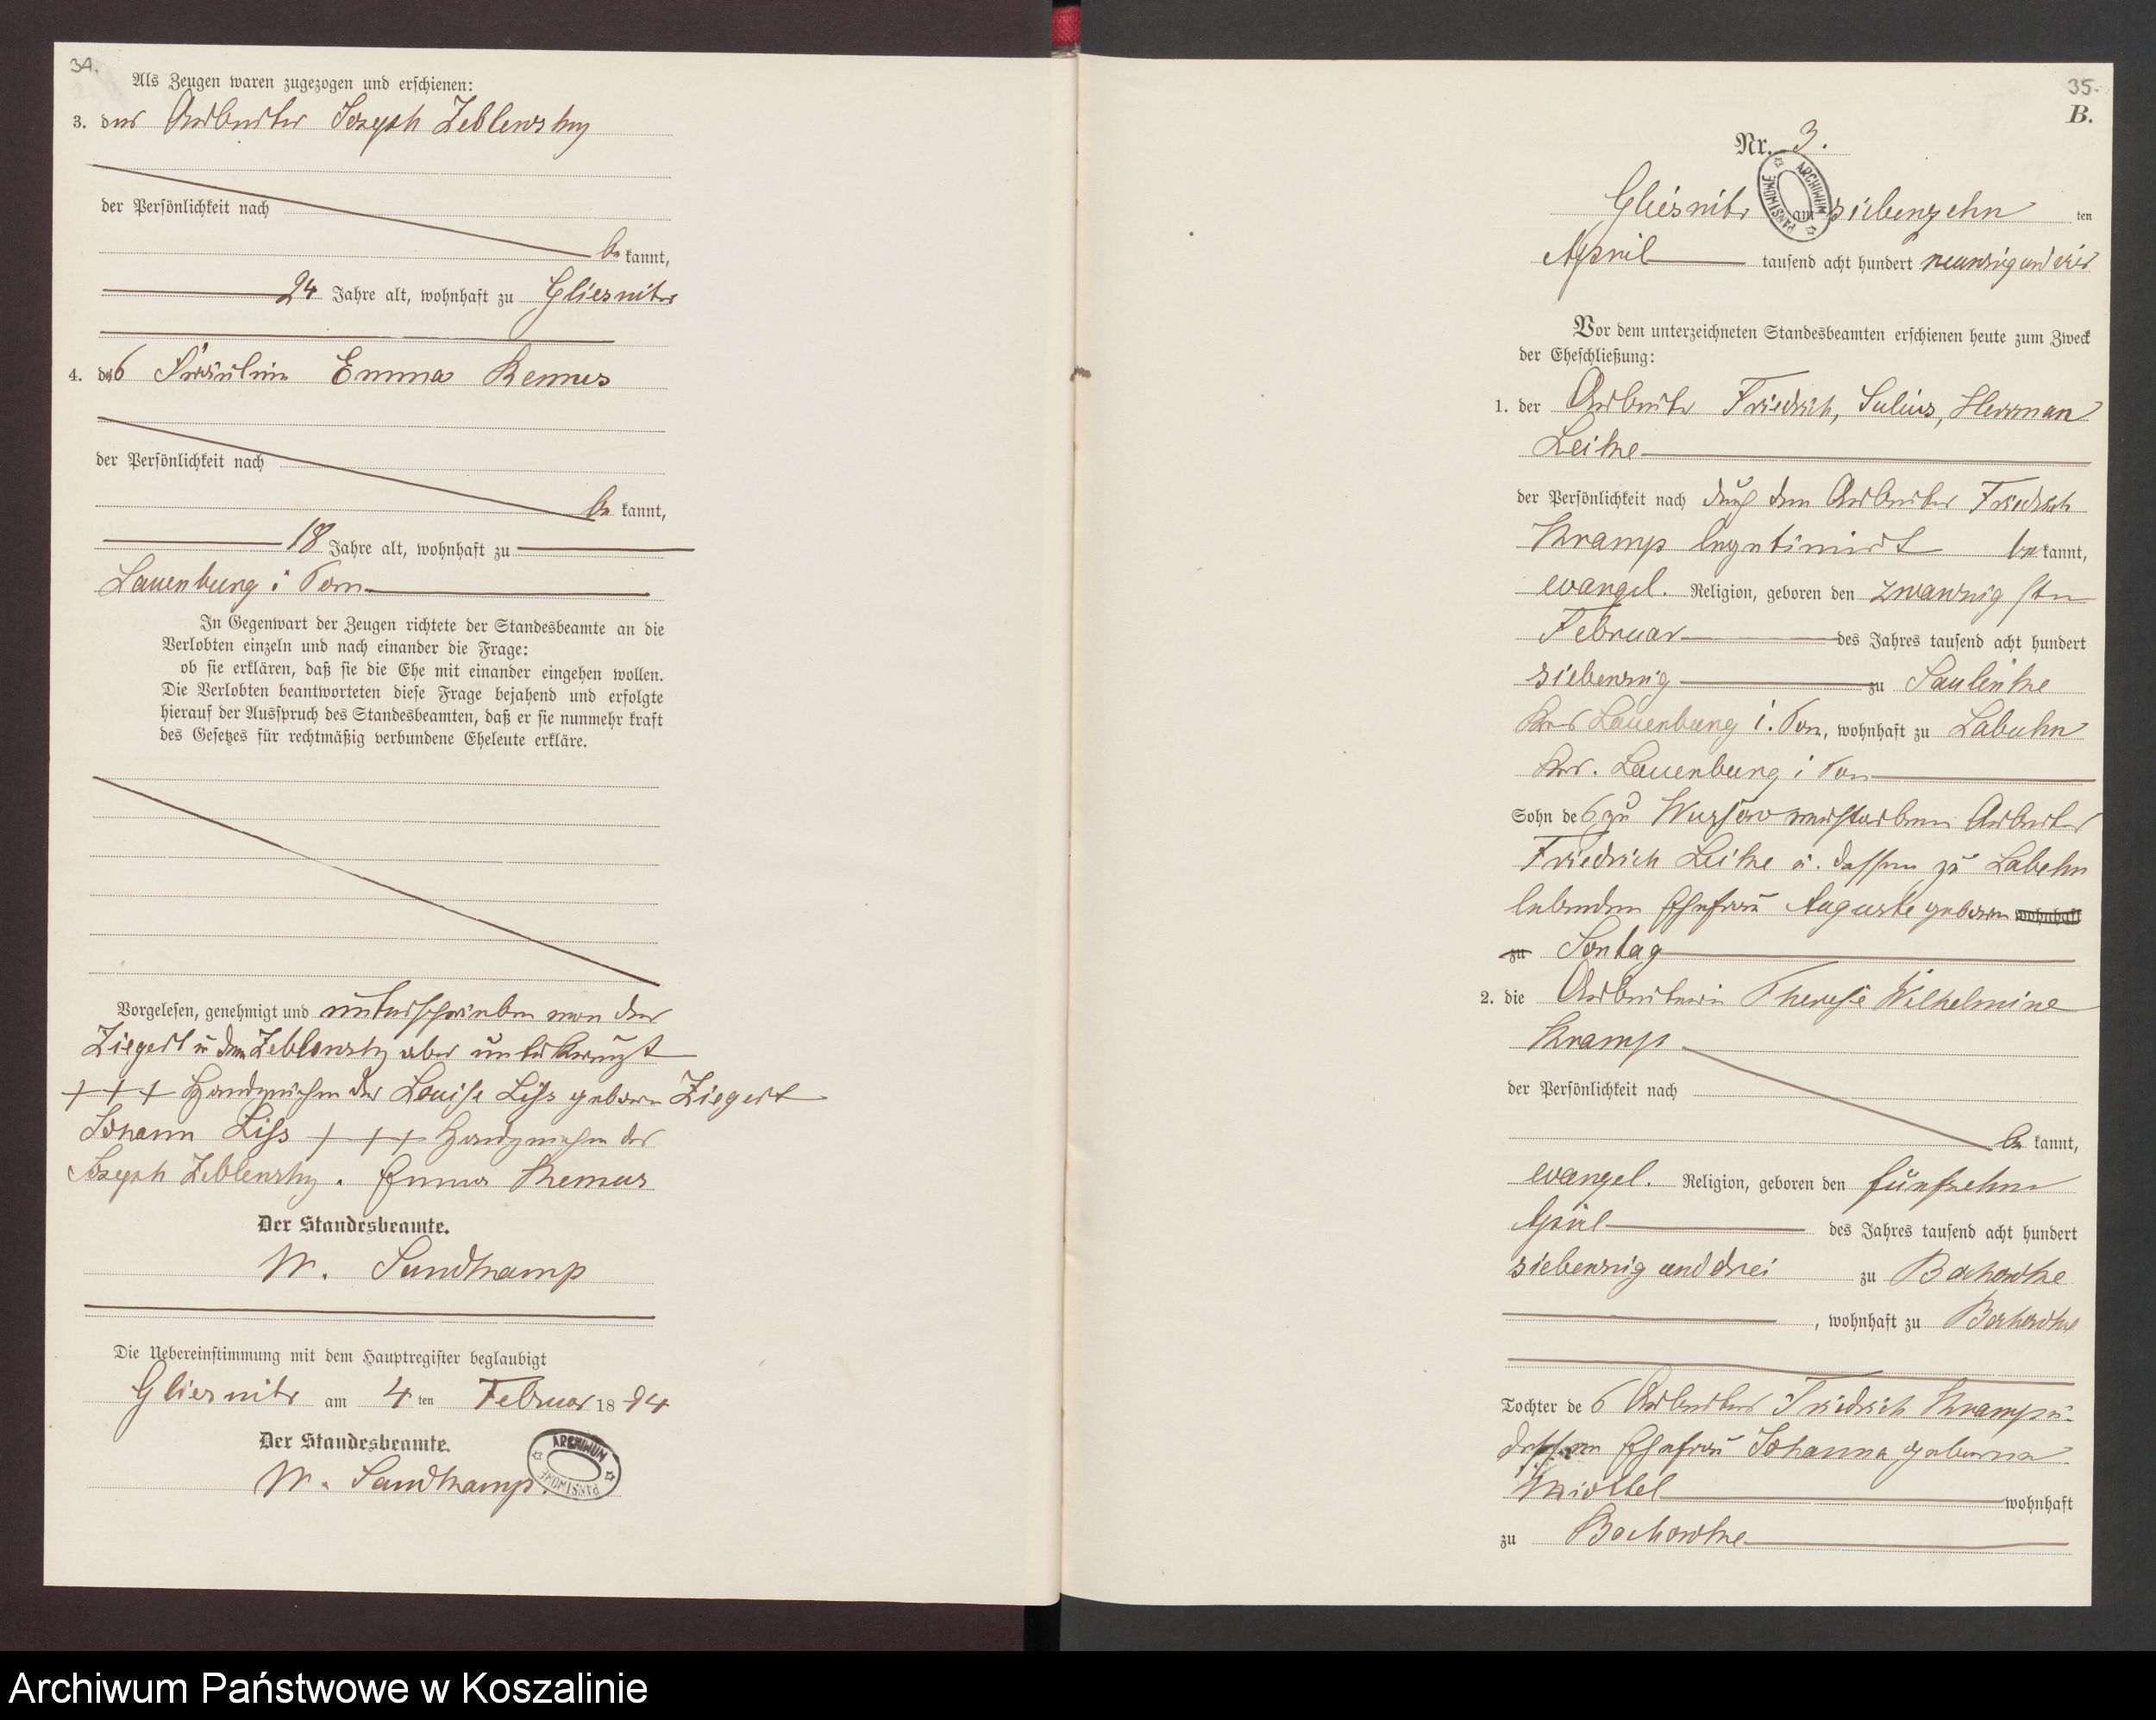 34.
Als Zeugen waren zugezogen und erschienen:
3. der Arbeiter Joseph Zeblewsky
der Persönlichkeit nach
be kannt,
24 Jahre alt, wohnhaft zu Gliesnitz
4. das Fräulein Emma Remus
der Persönlichkeit nach
be kannt,
18 Jahre alt, wohnhaft zu
Lauenburg i Pom.
In Gegenwart der Zeugen richtete der Standesbeamte an die
Verlobten einzeln und nach einander die Frage:
ob sie erklären, daß sie die Ehe mit einander eingehen wollen.
Die Verlobten beantworteten diese Frage bejahend und erfolgte
hierauf der Ausspruch des Standesbeamten, daß er sie nunmehr kraft
des Gesetzes für rechtmäßig verbundene Eheleute erkläre.
Vorgelesen, genehmigt und unterschrieben von der
Ziegert u dem Zeblewsky aber unterkreuzt
+ + + Handzeichen der Louise Liss geborn Ziegert
Johann Liss + + + Handzeichen des
Joseph Zeblewsky. Emma Remus
Der Standesbeamte.
W. Sandkamp
Die Uebereinstimmung mit dem Hauptregister beglaubigt
Gliesnitz am 4 ten Februar 18 94
Der Standesbeamte.
W. Sandkamp.
ARCHIWUM PAŃSTWOWE
35.
B.
Nr. 3.
ARCHIWUM PAŃSTWOWE
Gliesnitz am siebenzehn ten
April tausend acht hundert neunzig und drei
Vor dem unterzeichneten Standesbeamten erschienen heute zum Zweck
der Eheschließung:
1. der Arbeiter Friedrich, Julius, Herrman
Leitze
der Persönlichkeit nach durch den Arbeiter Friedrich
Kramp legitimirt be kannt,
evangel. Religion, geboren den zwanzigsten
Februar des Jahres tausend acht hundert
siebenzig zu Saulinke
Krs Lauenburg i. Pom, wohnhaft zu Labuhn
Krs. Lauenburg i Pom
Sohn des zu Wussow verstorbenen Arbeiter
Friedrich u. dessen zu Labehn
lebenden Ehefrau Auguste geboren wohnhaft
zu Sontag
2. die Arbeiterin Therese Wilhelmine
Kramp
der Persönlichkeit nach
be kannt,
evangel. Religion, geboren den fünfzehn
April des Jahres tausend acht hundert
siebenzig und drei zu Bochowke
, wohnhaft zu Bochowke
Tochter des Arbeiters Friedrich Kramp u.
dessen Ehefrau Johanna geborne
wohnhaft
zu Bochowke
Archiwum Państwowe w Koszalinie